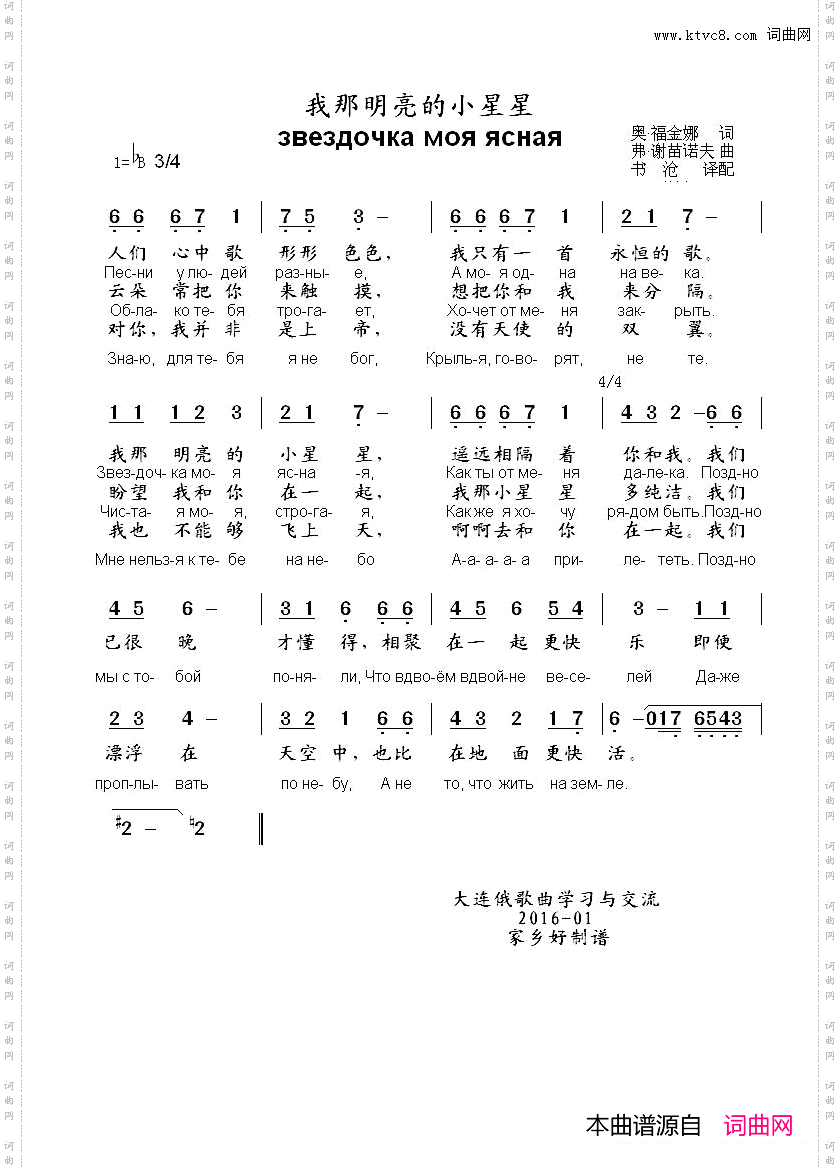 www.ktvc8.com 词曲网
我那明亮的小星星
звездочка моя ясная
奥·福金娜 词
1=♭B 3/4
弗·谢苗诺夫 曲
书 沧 译配
6 6 6 7 1 | 7 5 3 – | 6 6 6 7 1 | 2 1 7 – |
人们 心中 歌 形形 色色, 我只有一 首 永恒的 歌。
Пес-ни у лю-дей раз-ны-е, А мо-я од-на на ве-ка.
云朵 常把 你 来触 摸, 想把你和 我 来分 隔。
Об-ла-ко те-бя тро-га-ет, Хо-чет от ме-ня зак-рыть.
对你,我并 非 是上 帝, 没有天使 的 双 翼。
Зна-ю, для те-бя я не бог, Крыль-я, го-во-рят, не те.
4/4
1 1 1 2 3 | 2 1 7 – | 6 6 6 7 1 | 4 3 2 – 6 6 |
我那 明亮 的 小星 星, 遥远相隔 着 你和我。我们
Звез-доч-ка мо-я яс-на-я, Как ты от ме-ня да-ле-ка. Позд-но
盼望 我和 你 在一 起, 我那小星 星 多纯洁。我们
Чис-та-я мо-я, стро-га-я, Как же я хо-чу ря-дом быть.Позд-но
我也 不能 够 飞上 天, 啊啊去和 你 在一起。我们
Мне нельз-я к те-бе на не-бо А-а-а-а-а при-ле-теть. Позд-но
4 5 6 – | 3 1 6 6 6 | 4 5 6 5 4 | 3 – 1 1 |
已很 晚 才懂 得,相聚 在一 起 更快 乐 即便
мы с то-бой по-ня-ли, Что вдво-ём вдвой-не ве-се-лей Да-же
2 3 4 – | 3 2 1 6 6 | 4 3 2 1 7 | 6 – 017 6543 |
漂浮 在 天空 中,也比 在地 面 更快 活。
проп-лы-вать по не-бу, А не то, что жить на зем-ле.
♯2 – ♮2 ‖
大连俄歌曲学习与交流
2016-01
家乡好制谱
本曲谱源自 词曲网